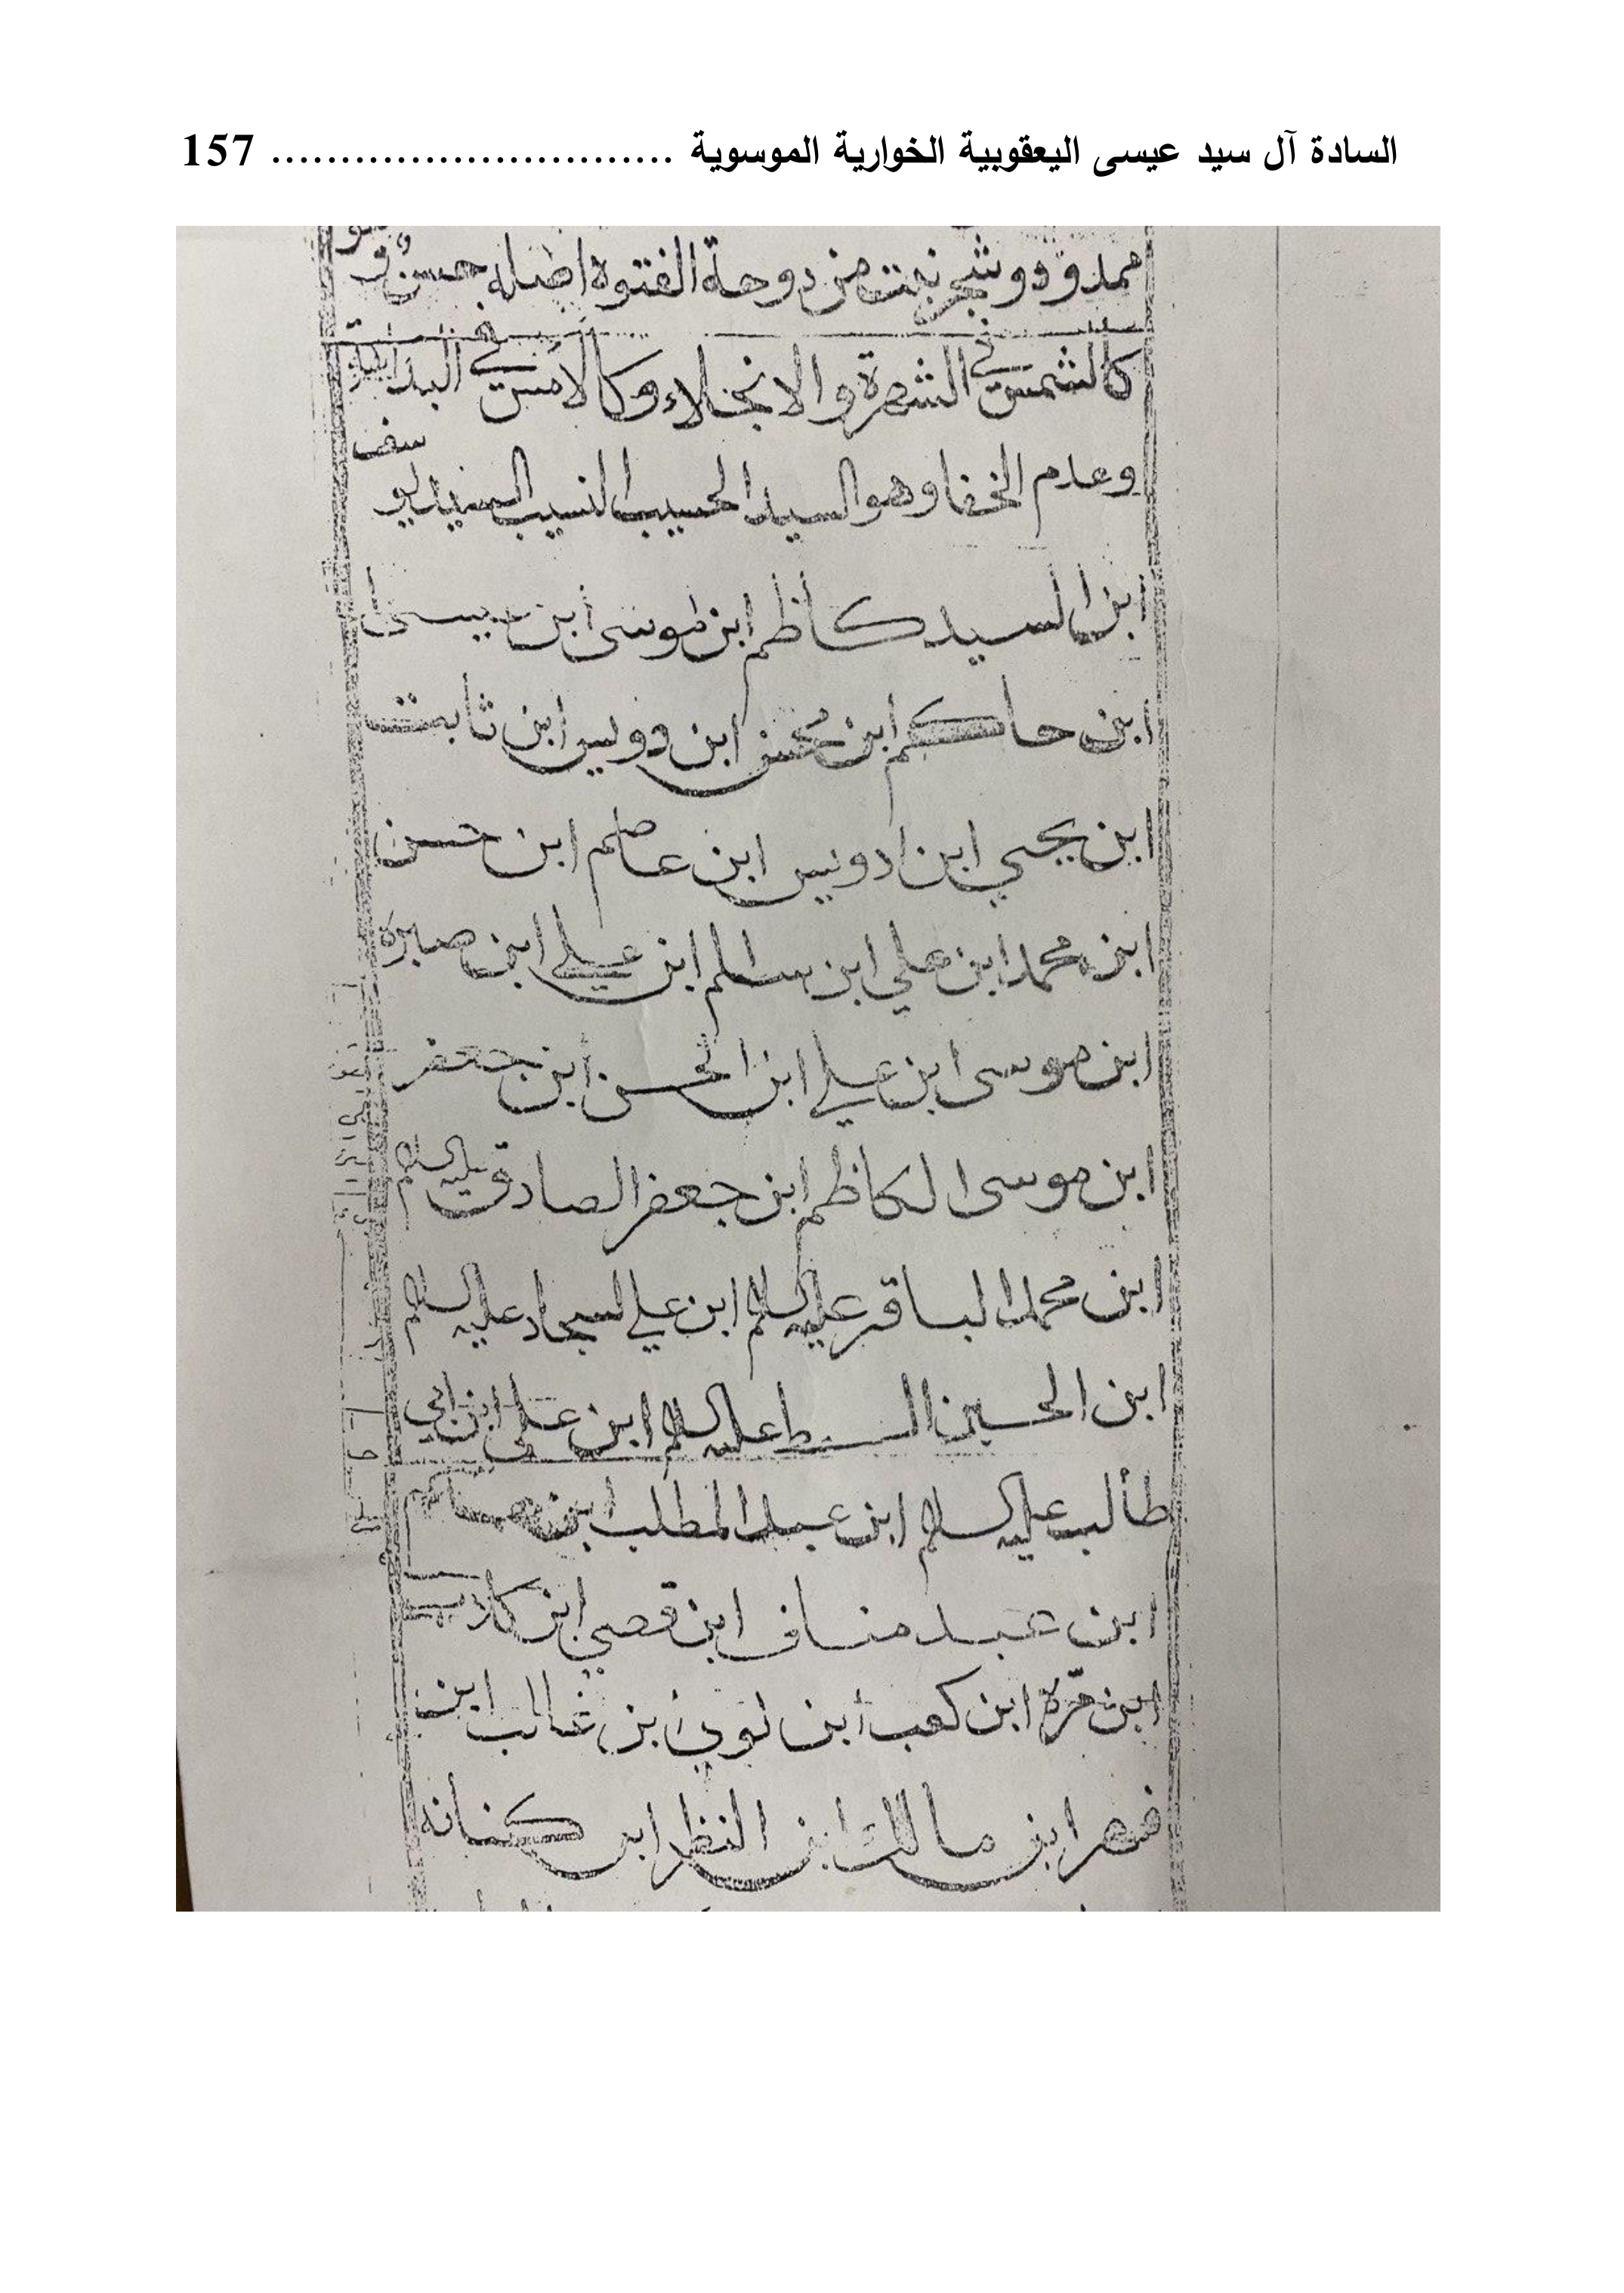 السادة آل سيد عيسى اليعقوبية الخوارية الموسوية ............................. 157
ممدود وشجر نبت من دوحة الفتوة اصله
كالشمس في الشهرة والانجلاء وكالامس في
وعدم الخفا وهو السيد الحسيب النسيب السيد يوسف
ابن السيد كاظم ابن موسى ابن عيسى
ابن حاكم ابن محسن ابن دويس ابن ثابت
ابن يحيى ابن ادويس ابن عاصم ابن حسن
ابن محمد ابن علي ابن سالم ابن علي ابن صبرة
ابن موسى ابن علي ابن الحسن ابن جعفر
ابن موسى الكاظم ابن جعفر الصادق عليه السلام
ابن محمد الباقر عليه السلام ابن علي السجاد عليه السلام
ابن الحسين السبط عليه السلام ابن علي ابن ابي
طالب عليه السلام ابن عبد المطلب ابن
ابن عبد مناف ابن قصي ابن كلاب
ابن مرّة ابن كعب ابن لوي ابن غالب ابن
فهر ابن مالك ابن النظر ابن كنانه